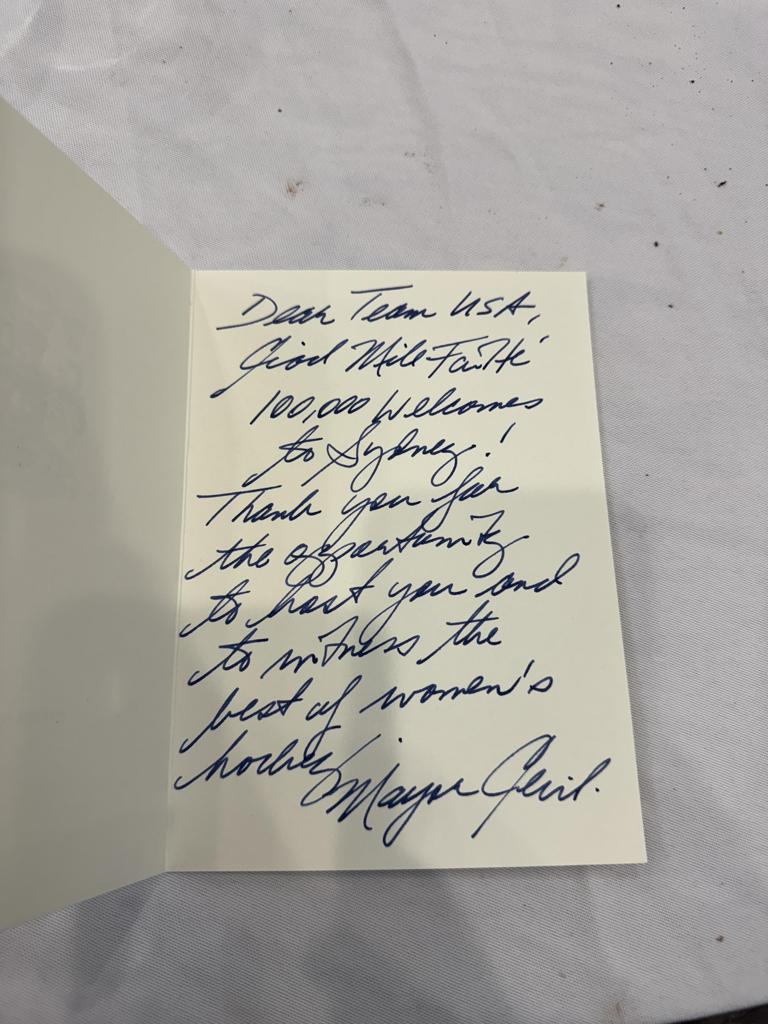 Dear Team USA,
Ciad Mile Failté
100,000 Welcomes
to Sydney!
Thank you for
the opportunity
to host you and
to witness the
best of women's
hockey.
Mayor Cecil.